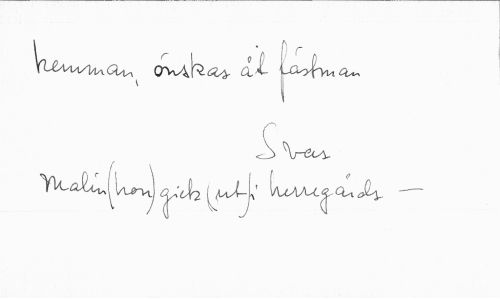 hemman, önskas åt fästman
Svas
Malin (hon) gick (ut) i herregårds —